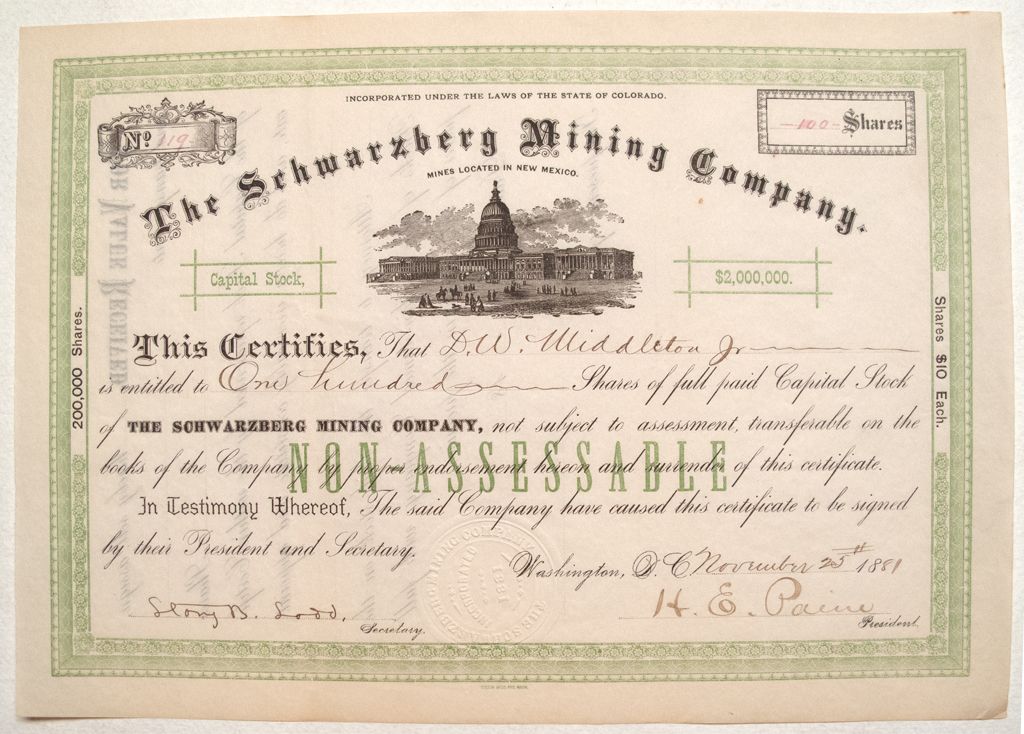 INCORPORATED UNDER THE LAWS OF THE STATE OF COLORADO.
No 119
-100- Shares
The Schwarzberg Mining Company.
MINES LOCATED IN NEW MEXICO.
Capital Stock,
$2,000,000.
200,000 Shares.
Shares $10 Each.
This Certifies, That D. W. Middleton Jr
is entitled to One hundred Shares of full paid Capital Stock
of THE SCHWARZBERG MINING COMPANY, not subject to assessment, transferable on the
books of the Company by proper endorsement hereon and surrender of this certificate.
NON-ASSESSABLE
In Testimony Whereof, The said Company have caused this certificate to be signed
by their President and Secretary.
Washington, D. C. November 25th 1881
Story B. Ladd. Secretary.
H. E. Paine President.
1881
FOR VALUE RECEIVED